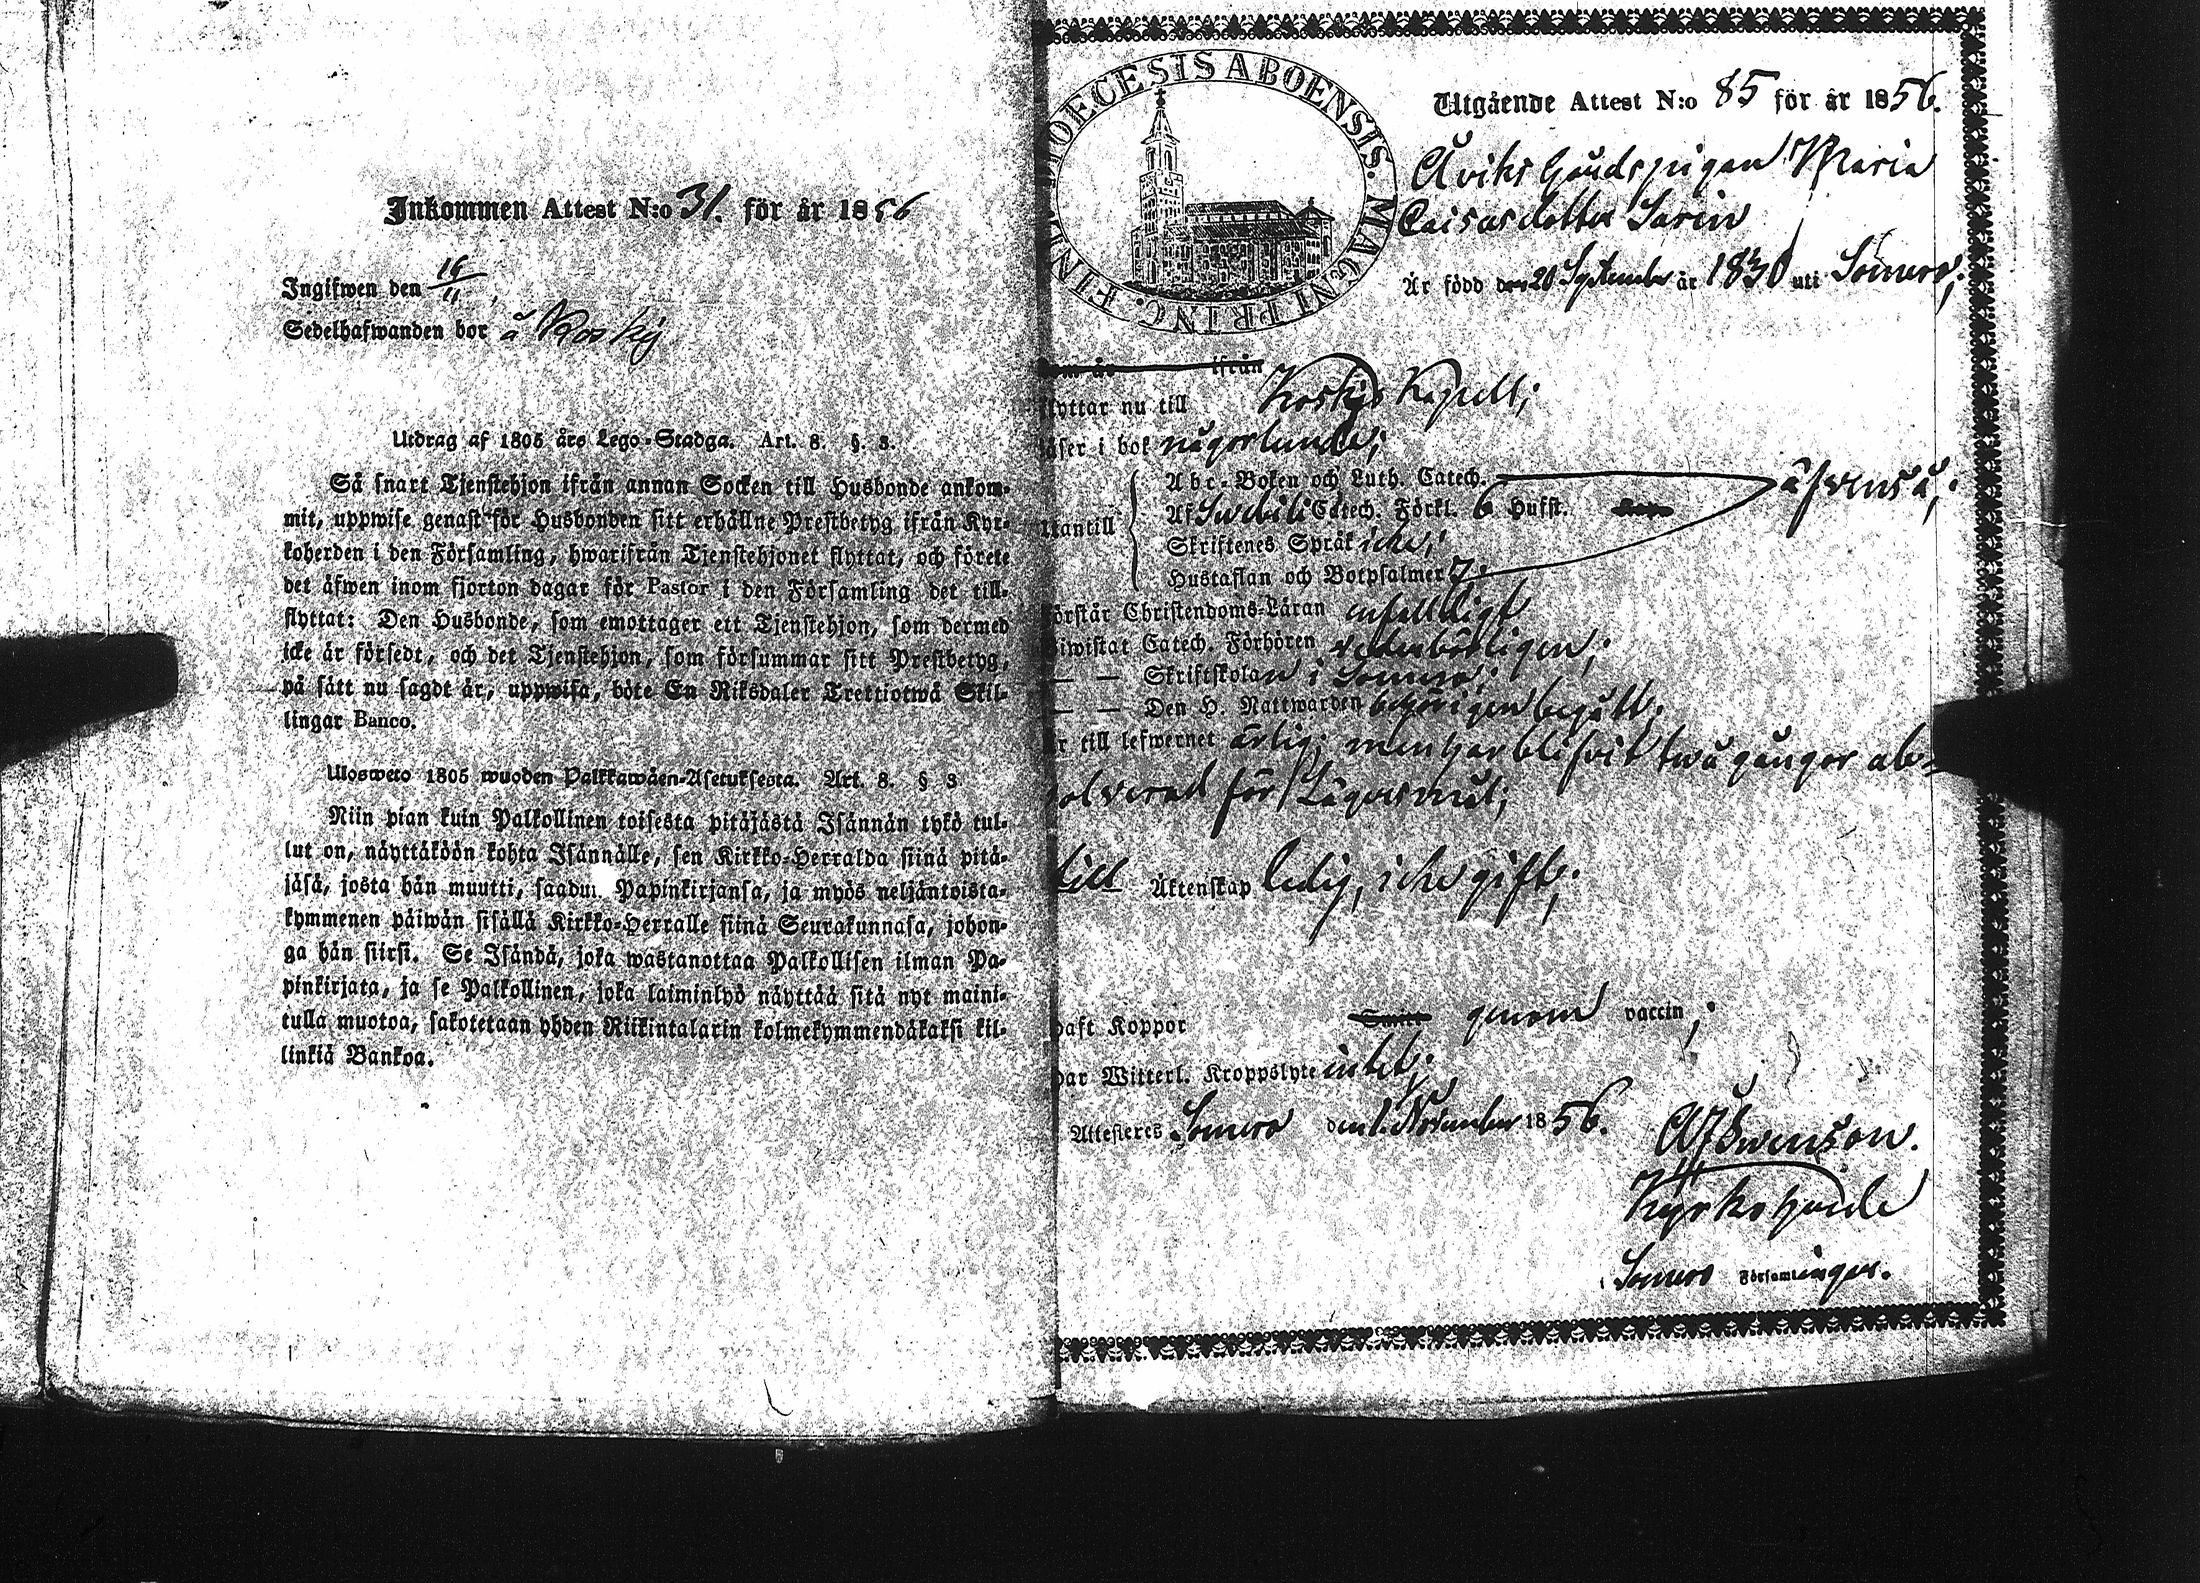 Inkommen Attest N:o 31. för år 1856
Ingifwen den 16/11,
Sedelhafwanden bor å Koskis
Utdrag af 1805 års Lego-Stadga. Art. 8. §. 3.
Så snart Tjenstehjon ifrån annan Socken till Husbonde ankom-
mit, uppwise genast för Husbonden sitt erhållne Prestbetyg ifrån Kyr-
koherden i den Församling, hwarifrån Tjenstehjonet flyttat, och förete
det äfwen inom fjorton dagar för Pastor i den Församling det till-
flyttat: Den Husbonde, som emottager ett Tjenstehjon, som dermed
icke är försedt, och det Tjenstehjon, som försummar sitt Prestbetyg,
på sätt nu sagdt är, uppwisa, böte En Riksdaler Trettiotwå Skil-
lingar Banco.
Ulosweto 1805 wuoden Palkkawäen-Asetuksesta. Art. 8. § 3
Niin pian kuin Palkollinen toisesta pitäjästä Isännän tykö tul-
lut on, näyttäköön kohta Isännälle, sen Kirkko-Herralda siinä pitä-
jäsä, josta hän muutti, saadun Papinkirjansa, ja myös neljäntoista-
kymmenen päiwän sisällä Kirkko-Herralle siinä Seurakunnasa, johon-
ga hän siirsi. Se Isändä, joka wastanottaa Palkollisen ilman Pa-
pinkirjata, ja se Palkollinen, joka laiminlyö näyttää sitä nyt maini-
tulla muotoa, sakotetaan yhden Riikintalarin kolmekymmendäkaksi kil-
linkiä Bankoa.
DIOECESIS ABOENSIS. MAGNI PRINC. FINL
Utgående Attest N:o 85 för år 1856.
Åviks Maria
Caisasdotter
Är född den 20 September år 1830 uti Somero;
om är ifrån
flyttar nu till Koskis Kapell;
läser i bok någorlunda;
Abc-Boken och Luth. Catech. äfvenså;
utantill Af Svebili Catech. Förkl. 6 Hufst.
Skriftenes Språk icke;
Hustaflan och Botpsalmer 7;
förstår Christendoms-Läran enfalldigt
biwistat Catech. Förhören vederbörligen;
— — Skriftskolan i Somero;
— — Den H. Nattwarden behörigen begått;
är till lefwernet ärlig; men har blifvit två gånger ab-
solverad för Lägersmål;
till Äktenskap ledig, icke gift;
haft Koppor genom vaccin;
har Witterl. Kroppslyte intet;
Attesteres Somero den 1. November 1856.
Swenson.
Kyrkoherde
i Somero Församlingar.